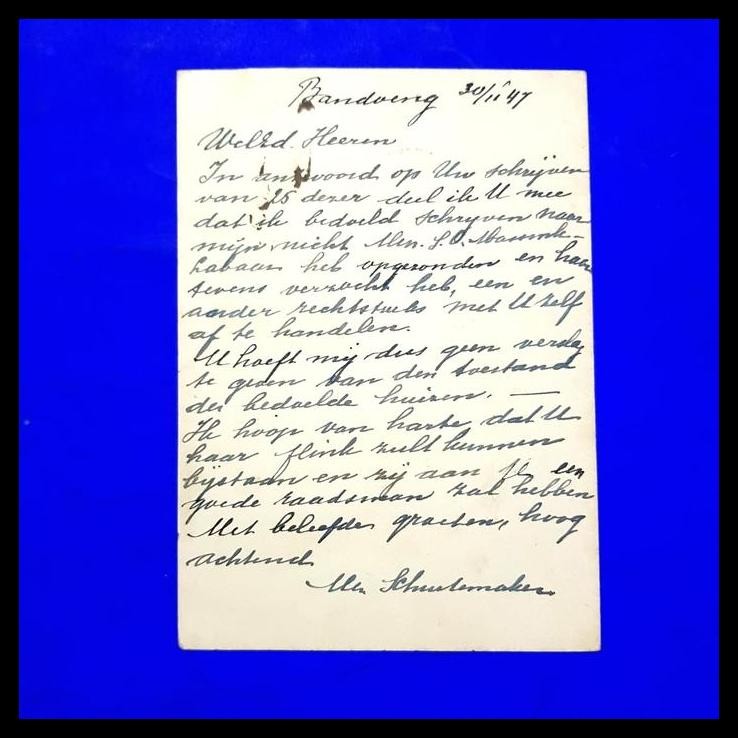 Bandoeng 30/11 47
WelEd. Heeren
In antwoord op Uw schrijven
van 25 dezer deel ik U mee
dat ik bedoeld schrijven naar
mijn nicht Mevr. S.O.
heb opgezonden en haar
tevens verzocht heb, een en
ander rechtstreeks met U zelf
af te handelen.
U hoeft mij dus geen verslag
te geven van den toestand
der bedoelde huizen. —
Ik hoop van harte, dat U
haar flink zult kunnen
bijstaan en zij aan U een
goede raadsman zal hebben
Met beleefde groeten, hoog
achtend
Mevr Schuttemaker